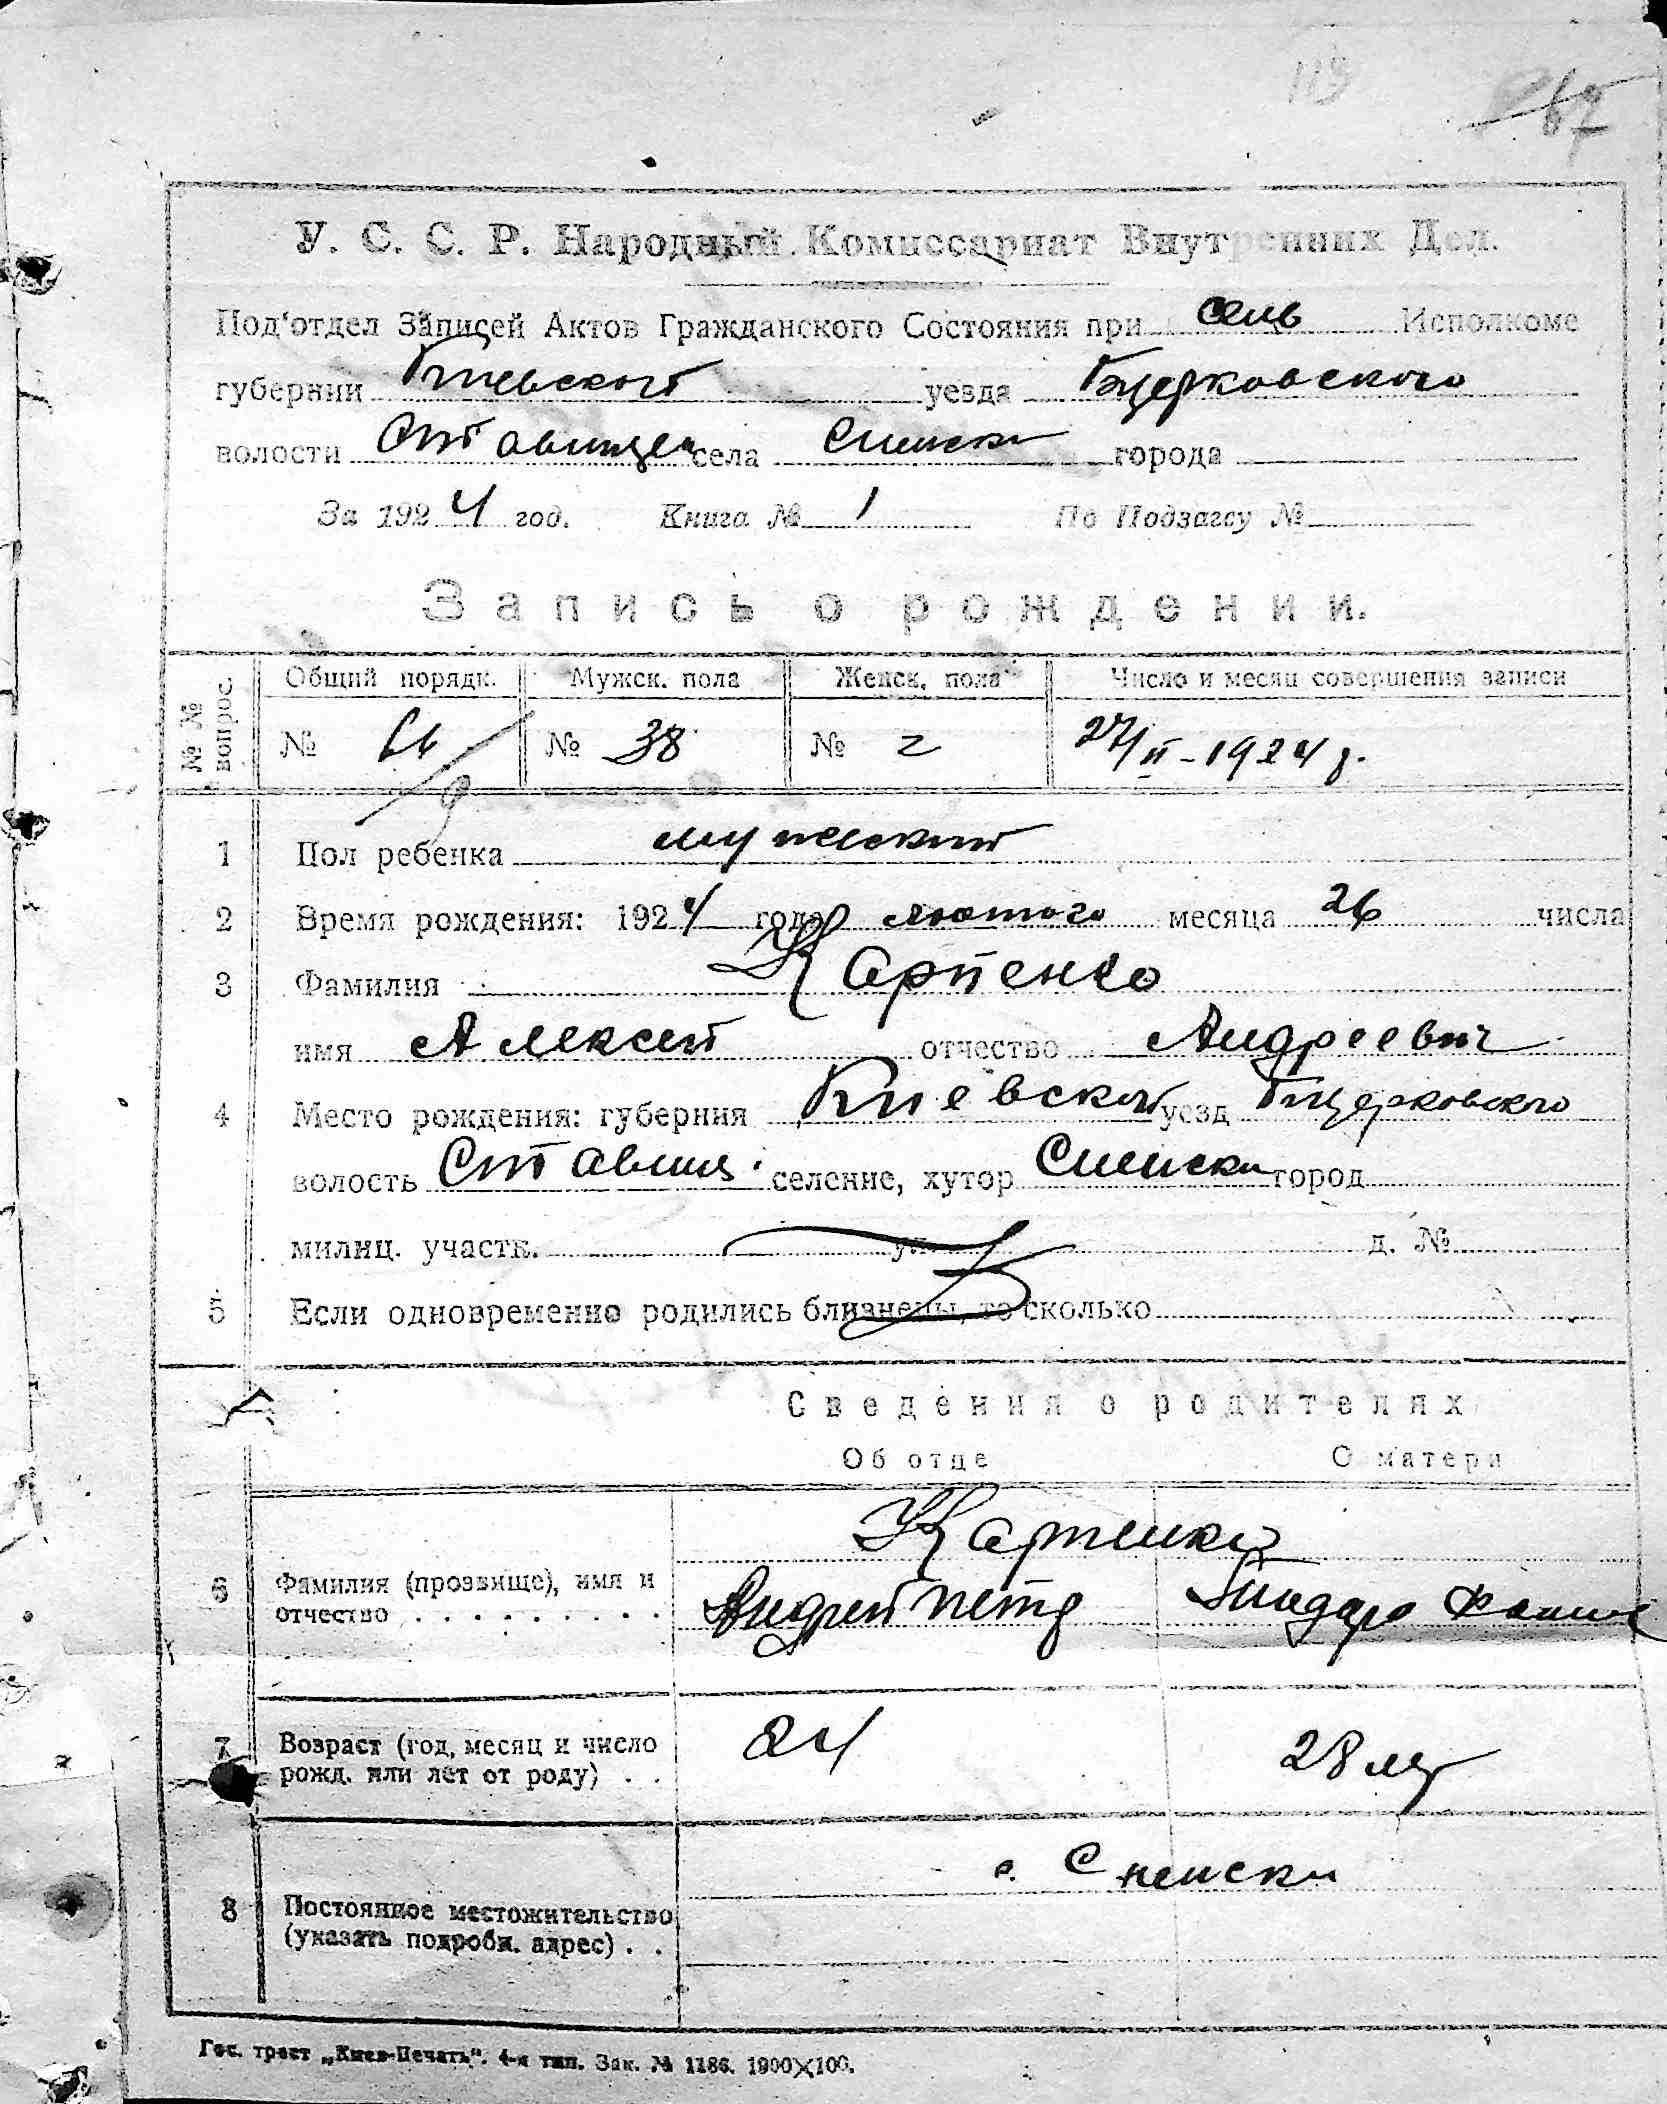 119
У. С. С. Р. Народный Комиссариат Внутренних Дел.
Под'отдел Записей Актов Гражданского Состояния при сель Исполкоме
губернии Киевской уезда Бцерковского
волости Ставищен села Снежки города
За 1924 год. Книга № 1 По Подзагсу №
Запись о рождении.
№ № вопрос. Общий порядк. Мужск. пола Женск. пола Число и месяц совершения записи
№ № 38 № 27/II-1924 г.
1 Пол ребенка мужеский
2 Время рождения: 1924 года лютого месяца 26 числа
3 Фамилия Карпенко
имя Алексей отчество Андреевич
4 Место рождения: губерния Киевской уезд Бцерковского
волость Ставищ. селение, хутор Снежки город
милиц. участк. ул. д. №
5 Если одновременно родились близнецы, то сколько
Сведения о родителях
Об отце О матери
Карпенко
6 Фамилия (прозвище), имя и
отчество Андрей Петр
7 Возраст (год, месяц и число
рожд. или лет от роду) 24 28 лет
с. Снежки
8 Постоянное местожительство
(указать подробн. адрес)
Гос. трест „Киев-Печать". 4-я тип. Зак. № 1186. 1900×100.